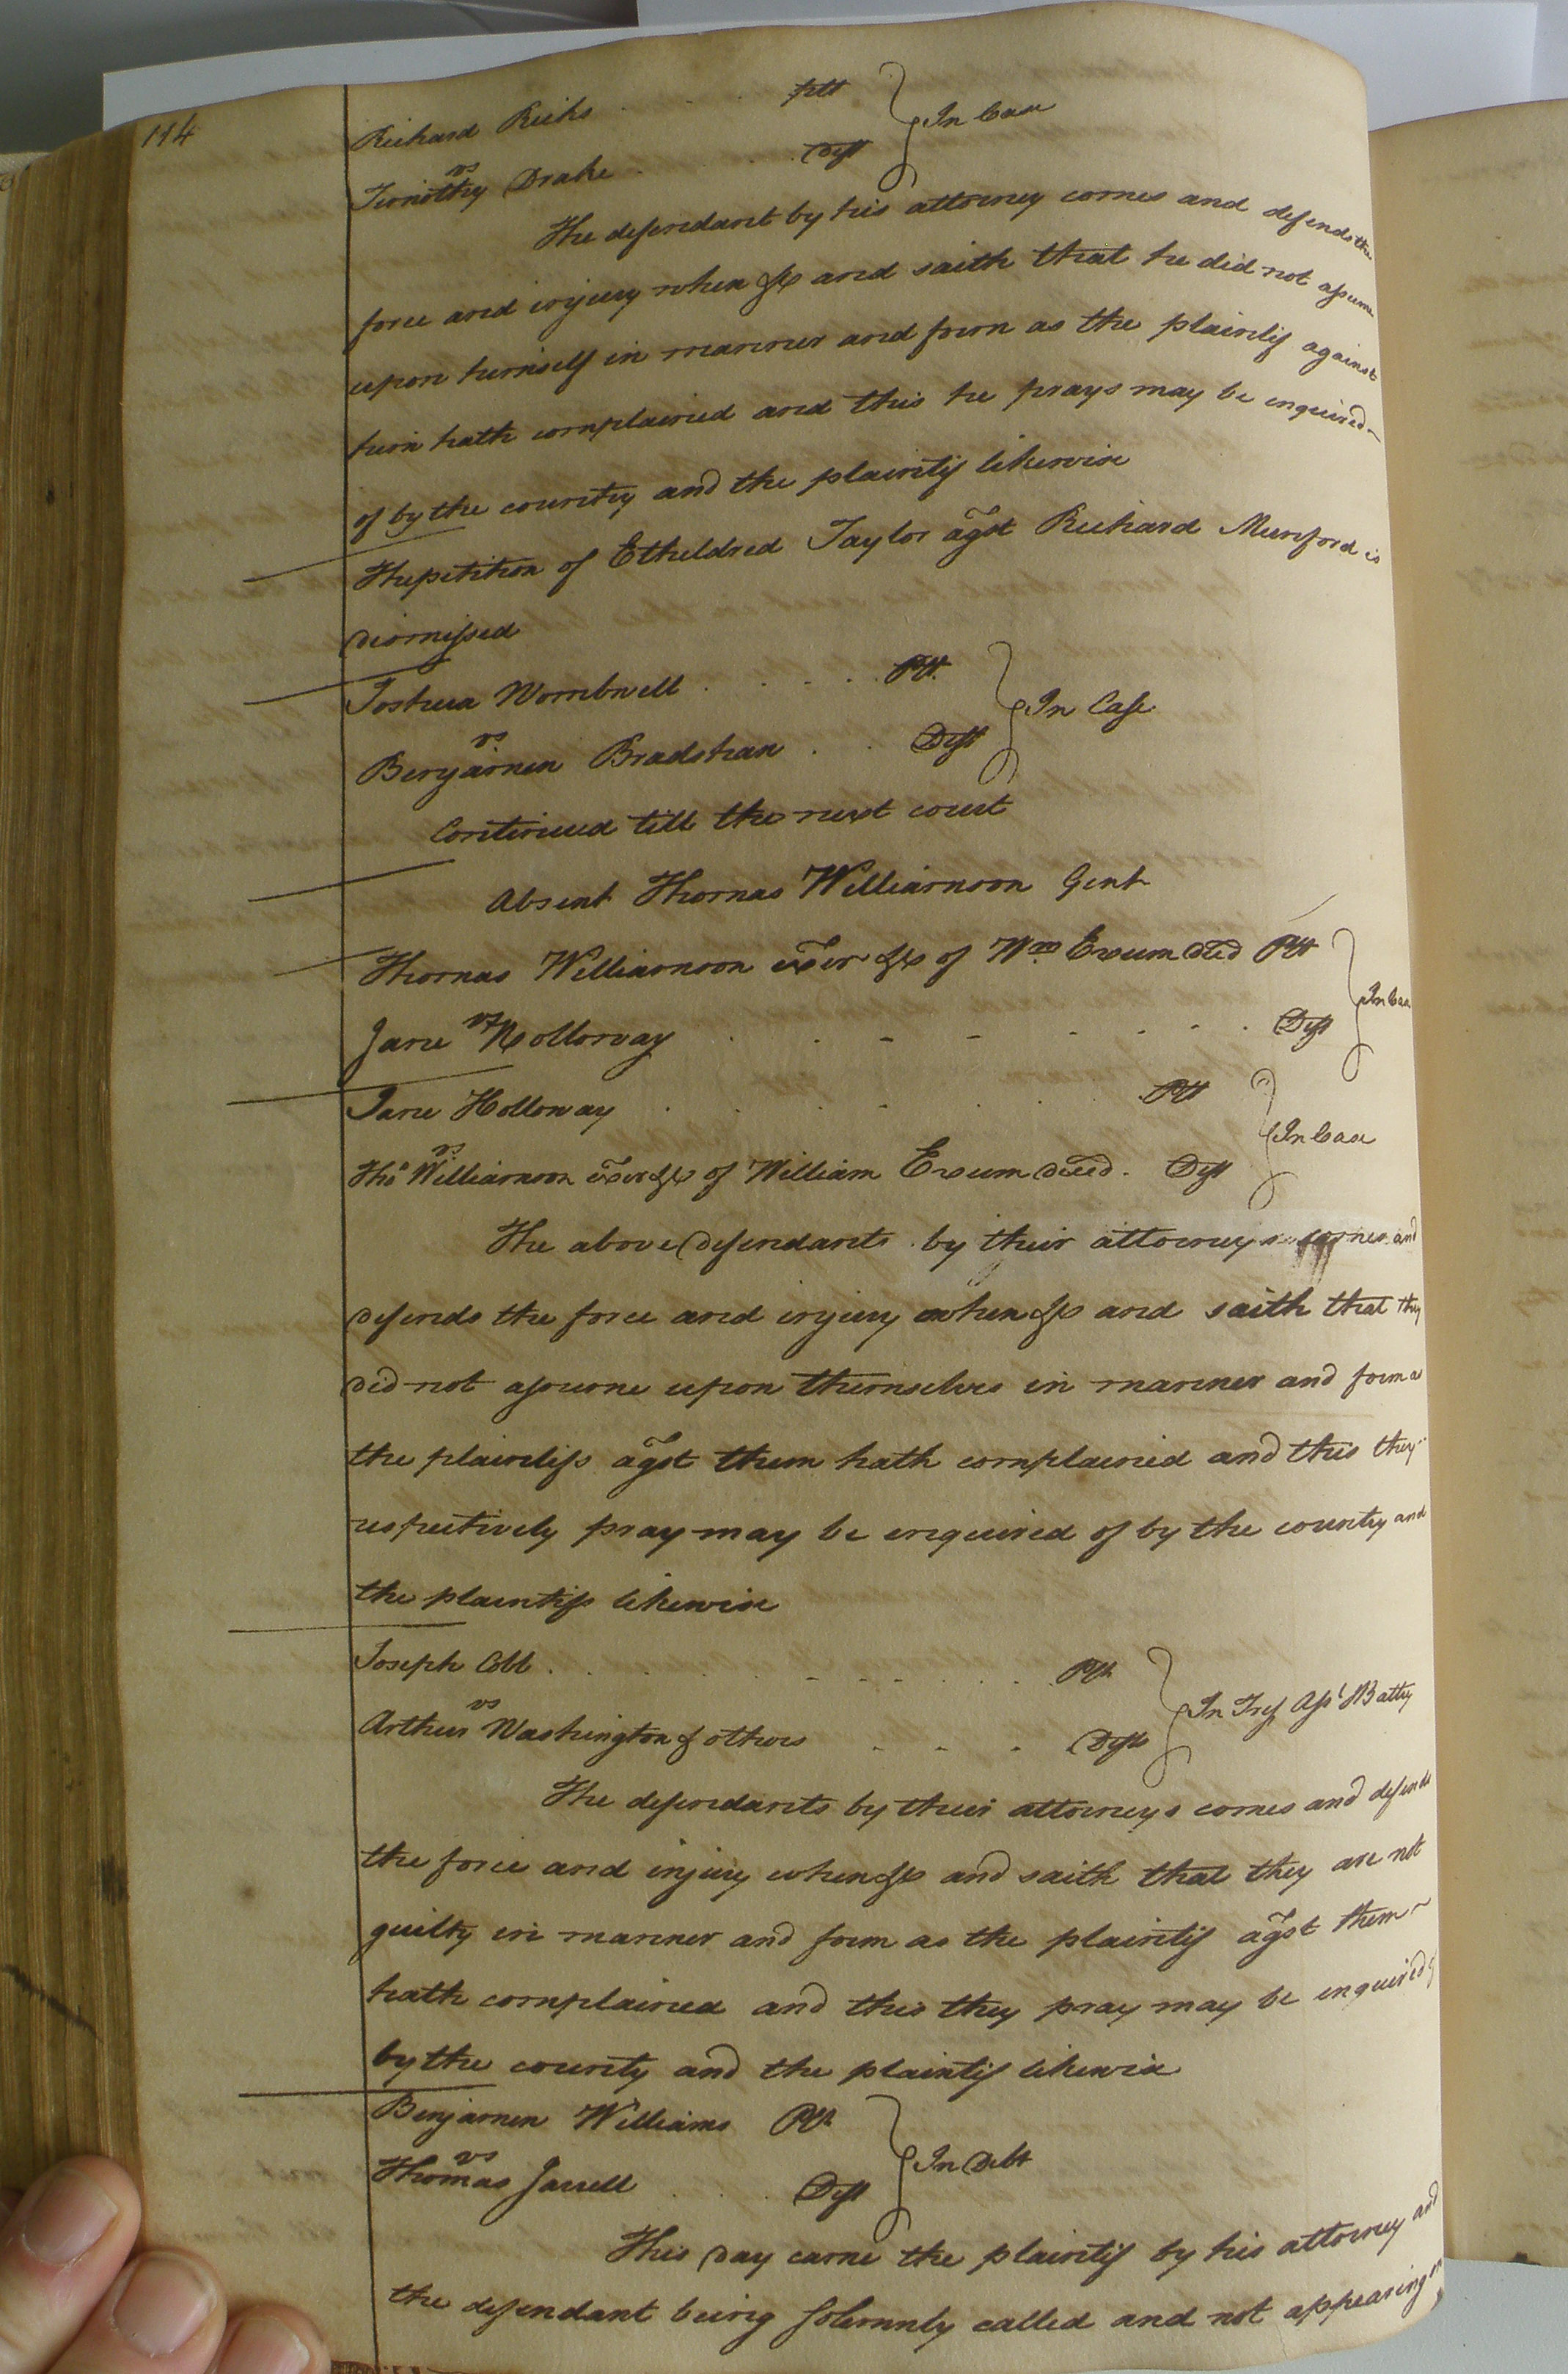 114
Richard Ricks . . . plt } In Case
vs
Timothy Drake . . . Deft
The defendant by his attorney comes and defends the
force and injury when &c and saith that he did not assume
upon himself in manner and form as the plaintif against
him hath complained and this he prays may be enquired
of by the country and the plaintif likewise
The petition of Etheldred Taylor agst Richard Munford is
dismissed
Joshua Wombwell . . . . Plt. } In Case
vs
Benjamen Bradshaw . . Deft
Continued till the next court
Absent Thomas Williamson Gent
Thomas Williamson exor &c of Wm Exum decd Plt } In Case
vs
Jane Holloway . . - - - . . Deft
Jane Holloway . . . - . . Plt } In Case
vs
Thos Williamson exor &c of William Exum deced. Deft
The above defendants by their attorneys comes and
defends the force and injury when &c and saith that they
did not assume upon themselves in manner and form as
the plaintifs agst them hath complained and this they
respectively pray may be enquired of by the country and
the plaintifs likewise
Joseph Cobb . . . . - - - . . Plt } In Tresp Asst & Battry
vs
Arthur Washington & others - - - Defts
The defendants by their attorneys comes and defends
the force and injury when &c and saith that they are not
guilty in manner and form as the plaintif agst them
hath complained and this they pray may be enquired of
by the country and the plaintif likewise
Benjamen Williams Plt } In Debt
vs
Thomas Jarrell . . . Deft
This day came the plaintif by his attorney and
the defendant being solemnly called and not appearing